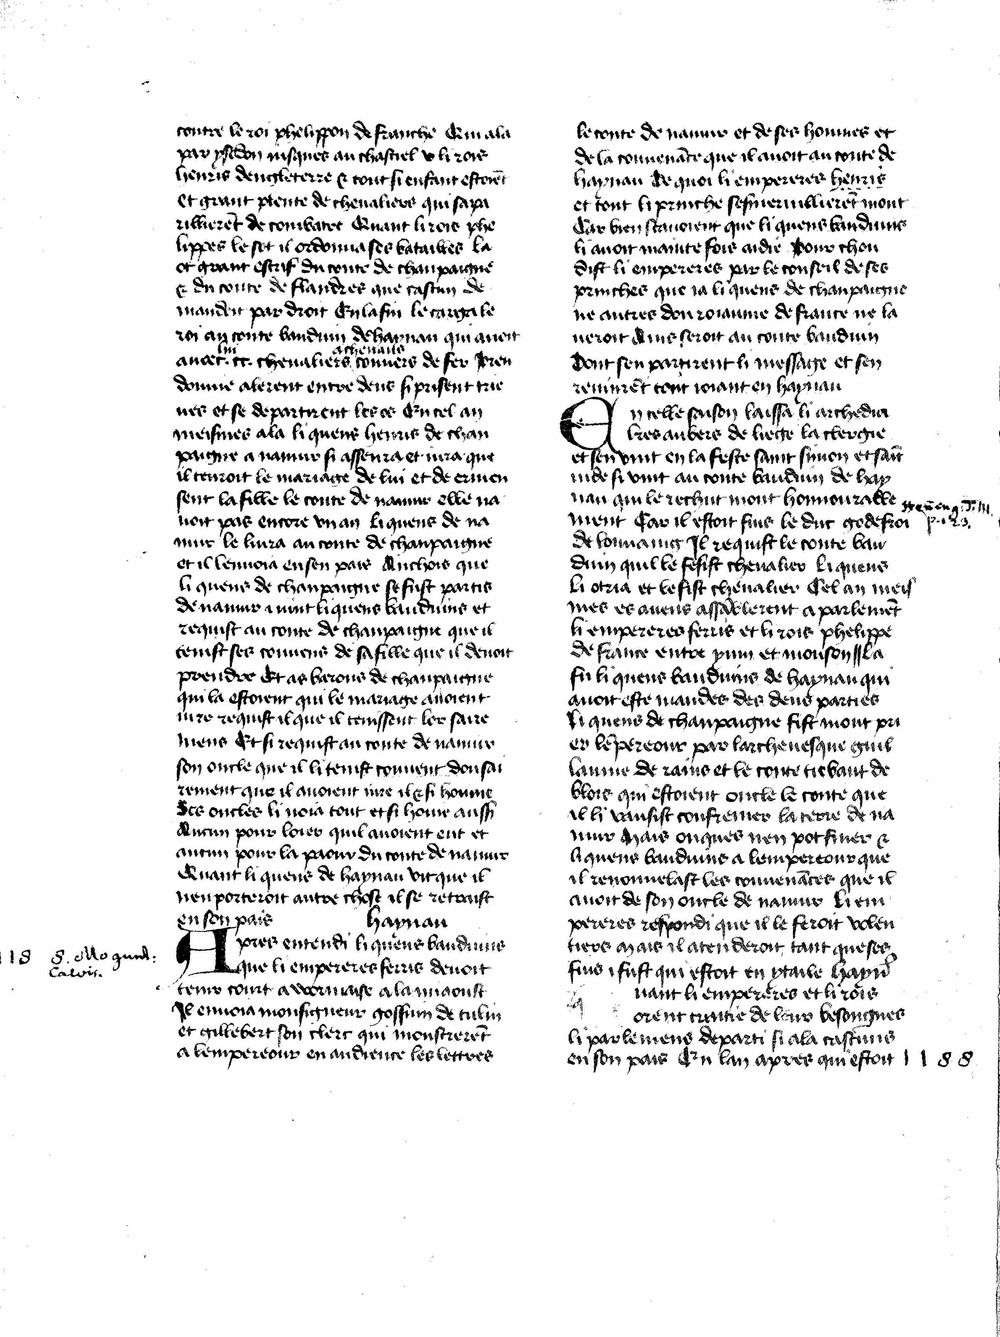 contre le roi phelippon de franche Qui ala
par ysodon iusques au chastiel v li rois
henris dengleterre & tout si enfant estoiēt
Et grant plente de cheualiers qui sapa
rillierēt de combatre Quant li rois phe
lippes le set il ordonna ses batailles La
ot grant estrif du conte de chanpaigne
& du conte de flandres que cascun de
mandoit par droit En la fin le carga le
roi au conte bauduin de haynau qui auoit
auoec lui .cc. cheualiers cheuaus couuers de fer Pren
domme alerent entre deus si prisent trie
ues et se departirent les os En cel an
meismes ala li quens henris de chan
paigne a namur si asseura et iura que
il tenroit le mariage de lui et de ermen
sent la fille le conte de namur elle na
uoit pas encore vn an Li quens de na
mur le liura au conte de chanpaigne
et il lenuoia en son pais Anchois que
li quens de chanpaigne se fust partis
de namur i uint li quens bauduins et
requist au conte de chanpaigne que il
tenist ses conuens de sa fille que il deuoit
prendre Et as barons de chanpaigne
qui la estoient qui le mariage auoient
iure requist il que il tenissent lor saire
mens Et si requist au conte de namur
son oncle que il li tenist conuent dou sai
rement que il auoient iure il & si homme
Ses oncles li noia tout et si home aussi
Aucun pour loier quil auoient eut et
aucun pour la paour du conte de namur
Quant li quens de haynau vit que il
nen porteroit autre chose il se retraist
en son pais haynau
Apres entendi li quens bauduins
que li empereres ferris deuoit
tenir court a wormaise a la miaoust
Il enuoia monsigneur gossuin de tulin
et gillebert son clerc qui monstrerēt
a lempereour en audience les lettres
118 8. Mogunt:
le conte de namur et de ses hommes et
de la conuenāce que il auoit au conte de
haynau De quoi li empereres henris
et tout li prinche sesmeruillierēt mout
Car bien sauoient que li quens bauduins
li auoit mainte fois aidie Pour chou
dist li empereres par le conseil de ses
prinches que ia li quens de chanpaigne
ne autres dou roiaume de france ne la
ueroit Ains seroit au conte bauduin
Dont sen partirent li message et sen
reuinrēt tout ioiant en haynau
En celle saison laissa li archedia
kres aubers de liege la clergie
et sen vint en la feste saint simon et saīt
iude si vint au conte bauduin de hay
nau qui le rechut mout honnourable
ment Car il estoit fius le duc godefroi
de louuaing Il requist le conte bau
duin quil le fesist cheualier Li quens
li otria et le fist cheualier Cel an meis
mes es auens assāblerent a parlemēt
li empereres ferris et li rois phelippe
de france entre yuin et mouson La
fu li quens bauduins de haynau qui
auoit este mandes des deus parties
Li quens de chanpaigne fist mout pri
er lēpereour par larcheuesque guil
laume de rains et le conte tiebaut de
blois qui estoient oncle le conte que
il li vausist confremer la terre de na
mur Mais onques nen pot finer &
li quens bauduins a lempereour que
il renouuelast les conuenāces que il
auoit de son oncle de namur Li em
pereres respondi que il le feroit volen
tiers mais il atenderoit tant que ses
fius i fust qui estoit en ytaile haynᵘ
uant li empereres et li rois
orent traitie de leur besongnes
li parlemens departi si ala cascuns
en son pais En lan apres qui estoit 1188
p. 123.